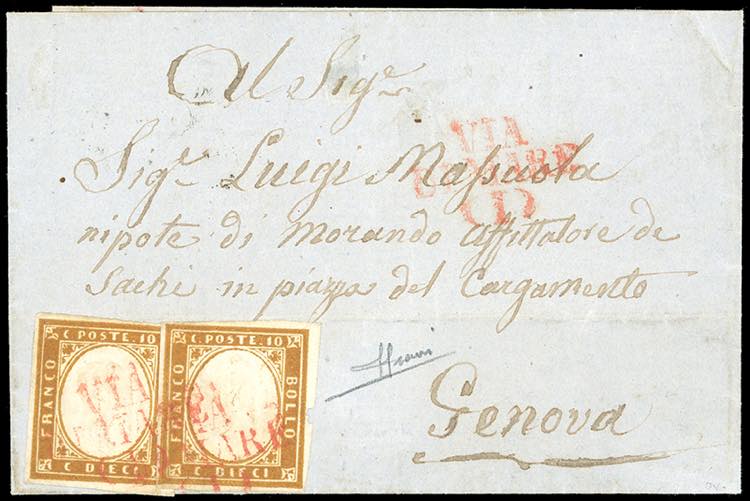 Al Sig.r
Sig.r Luigi Massuola
nipote di Morando affittalore de
Sachi in piazza del Cargamento
Genova
VIA
DI MARE
(D)
C. POSTE. 10
FRANCO
C. DIECI
C. POSTE. 10
FRANCO
BOLLO
C. DIECI
VIA
DI MARE